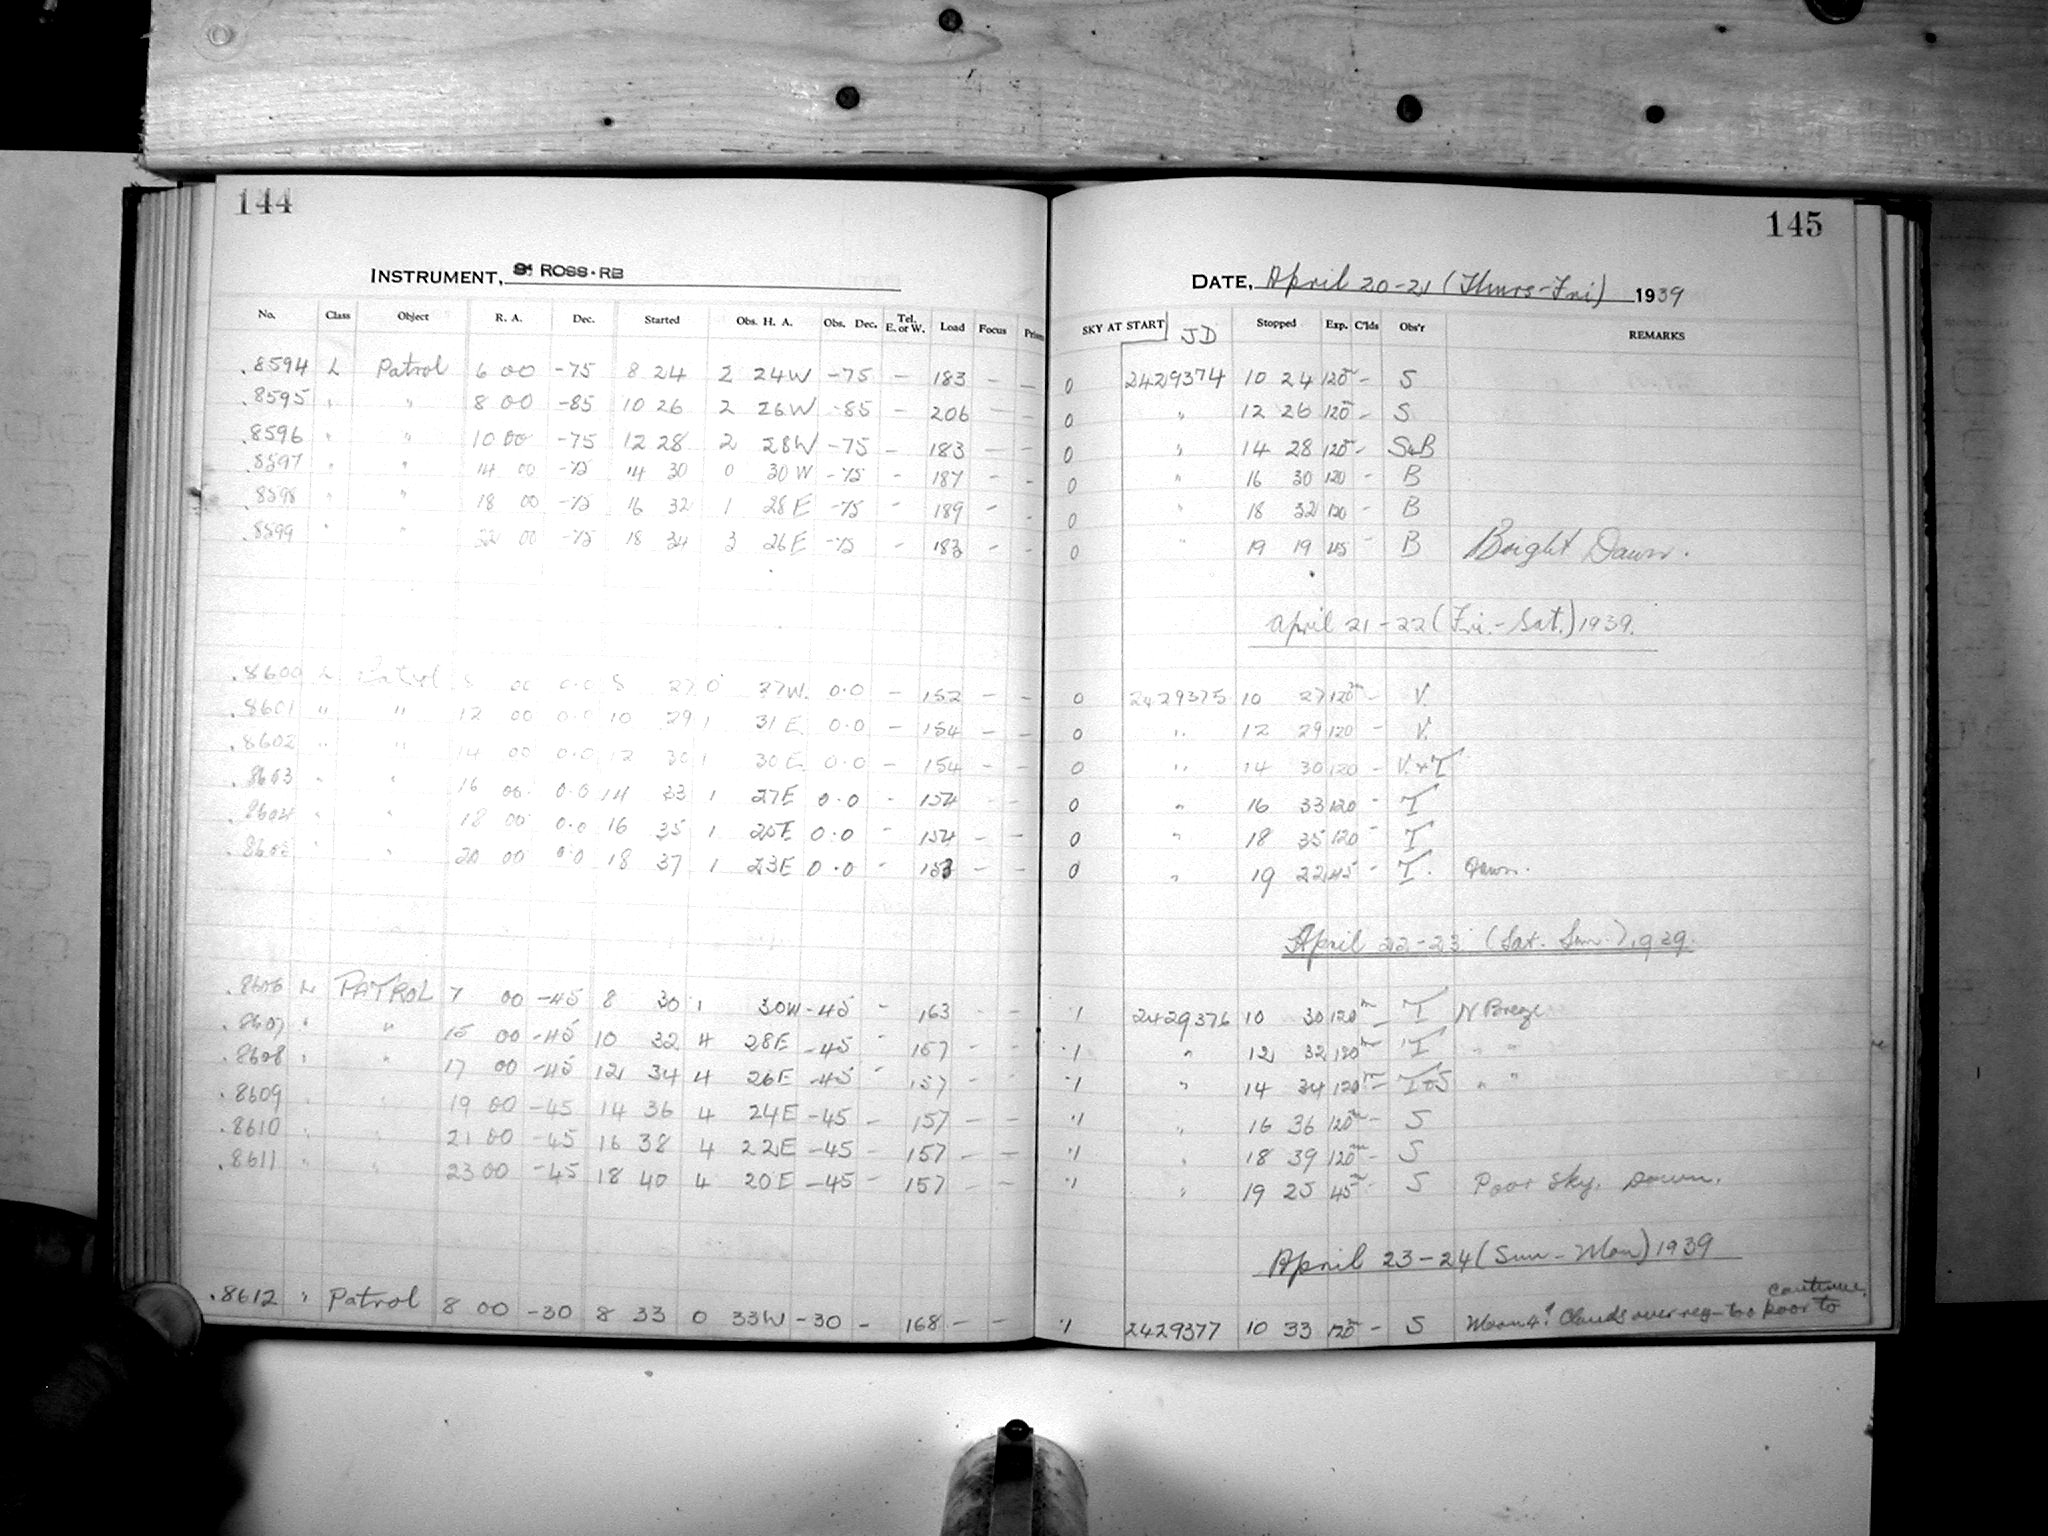 144
INSTRUMENT, ROSS-RB
No. Class Object R. A. Dec. Started Obs. H. A. Obs. Dec. Tel. E. or W. Load Focus
.8594 L Patrol 6 00 -75 8 24 2 24W -75 - 183 - -
.8595 " " 8 00 -85 10 26 2 26W -85 - 206 - -
.8596 " " 10 00 -75 12 28 2 28W -75 - 183 - -
.8597 " " 14 00 -75 14 30 0 30W -75 - 187 - -
.8598 " " 18 00 -75 16 32 1 28E -75 - 189 - -
.8599 " " 22 00 -75 18 34 3 26E -75 - 183 - -
.8600 L Patrol 8 00 0.0 8 27 0 27W. 0.0 - 152 - -
.8601 " " 12 00 0.0 10 29 1 31E 0.0 - 154 - -
.8602 " " 14 00 0.0 12 30 1 30E 0.0 - 154 - -
.8603 " " 16 00 0.0 14 33 1 27E 0.0 - 154 - -
.8604 " " 18 00 0.0 16 35 1 25E 0.0 - 154 - -
.8605 " " 20 00 0.0 18 37 1 23E 0.0 - 153 - -
.8606 L PATROL 7 00 -45 8 30 1 30W -45 - 163 - -
.8607 " " 15 00 -45 10 32 4 28E -45 - 157 - -
.8608 " " 17 00 -45 12 34 4 26E -45 - 157 - -
.8609 " " 19 00 -45 14 36 4 24E -45 - 157 - -
.8610 " " 21 00 -45 16 38 4 22E -45 - 157 - -
.8611 " " 23 00 -45 18 40 4 20E -45 - 157 - -
.8612 " Patrol 8 00 -30 8 33 0 33W -30 - 168 - -
145
DATE, April 20-21 (Thurs-Fri) 1939
SKY AT START JD Stopped Exp. C'lds Obs'r REMARKS
0 2429374 10 24 120m - S
0 " 12 26 120m - S
0 " 14 28 120m - S&B
0 " 16 30 120 - B
0 " 18 32 120 - B
0 " 19 19 45 - B Bright Dawn.
April 21-22 (Fri.-Sat.) 1939.
0 2429375 10 27 120m - V.
0 " 12 29 120 - V.
0 " 14 30 120 - V.+T
0 " 16 33 120 - T
0 " 18 35 120 - T
0 " 19 22 45 - T. Dawn.
April 22-23 (Sat. Sun.) 1939.
.1 2429376 10 30 120m - T N Breeze
.1 " 12 32 120m - T " "
.1 " 14 34 120m - T&S " "
.1 " 16 36 120m - S
.1 " 18 39 120m - S
.1 " 19 25 45m - S Poor Sky. Dawn.
April 23-24 (Sun-Mon) 1939
.1 2429377 10 33 120m - S Clouds over reg - too poor to
continue.